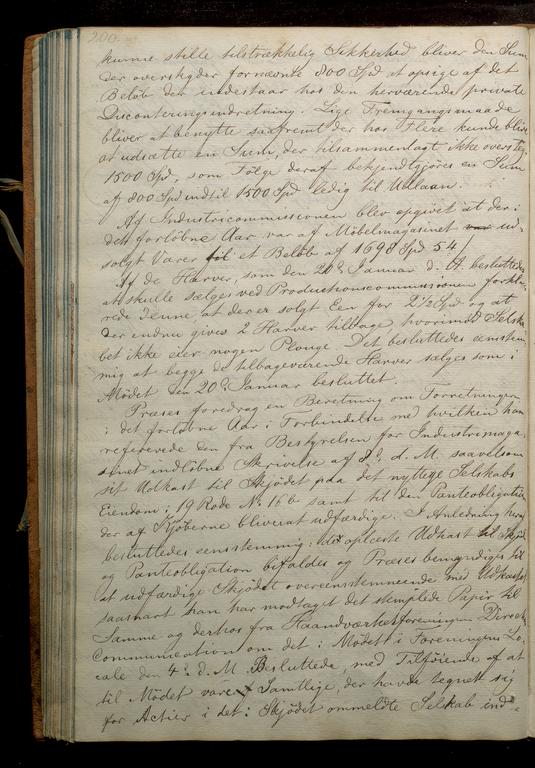 200.
kunne stille tilstrækkelig Sikkerhed bliver den Sum
der overskyder fornævnte 800 Spd at opsige af det
Beløb der indestaar hos den herværende private
Disconteringsindretning. Lige Fremgangsmaade
bliver at benytte saafremt der hos Flere kunde blive
at udsætte en Sum, der tilsammenlagt ikke oversteg
1500 Spd, som Følge deraf bekjendtgjøres en Sum
af 800 Spd indtil 1500 Spd ledig til Udlaan.
Af Industricommissionen blev opgivet at der i
det forløbne Aar var af Møbelmagasinet var ud-
solgt Varer til et Beløb af 1698 Spd 54 /
Af de Harver, som den 20d Januar d. A. besluttedes
at skulle sælges ved Productionscommissionen forkla-
rede denne at der er solgt Een for 2 1/2 Spd og at
der endnu gives 2 Harver tilbage, hvorimod Selska-
bet ikke eier nogen Plouge. Det besluttedes eenstem-
mig at begge de tilbageværende Harver sælges som i
Mødet den 20d Januar besluttet.
Præses foredrog en Beretning om Forretningen
i det forløbne Aar i Forbindelse med hvilken han
refererede den fra Bestyrelsen for Industrimaga-
sinet indløbne Skrivelse af 8d d. M. saavelsom
sit Udkast til Skjødet paa det nyttige Selskabs
Eiendom i 19 Rode No 16b samt til den Panteobligation
der af Kjøberne bliver at udfærdige. I Anledning heraf
besluttedes eensstemmig: det oplæste Udkast til Skjøde
og Panteobligation bifaldes og Præses bemyndiges til
at udfærdige Skjødet overeensstemmende med Udkastet,
saasnart han har modtaget det stemplede Papir til
Samme og derhos fra Haandværkerforeningens Direct.
Communication om det i Mødet i Foreningens Lo-
cale den 4d d. M. Besluttede, med Tilføiende af at
til Mødet vare Samtlige, der havde tegnet sig
for Actier i det i Skjødet ommeldte Selskab ind-